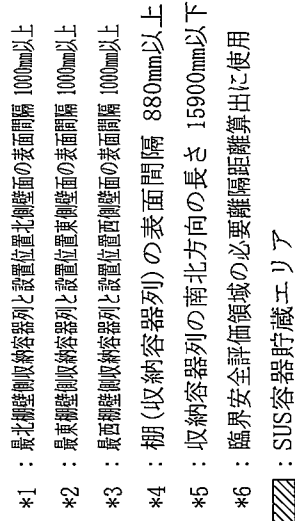 *1 : 最北棚壁側収納容器列と設置位置北側壁面の表面間隔 1000mm以上
*2 : 最東棚壁側収納容器列と設置位置東側壁面の表面間隔 1000mm以上
*3 : 最西棚壁側収納容器列と設置位置西側壁面の表面間隔 1000mm以上
*4 : 棚(収納容器列)の表面間隔 880mm以上
*5 : 収納容器列の南北方向の長さ 15900mm以下
*6 : 臨界安全評価領域の必要離隔距離算出に使用
: SUS容器貯蔵エリア